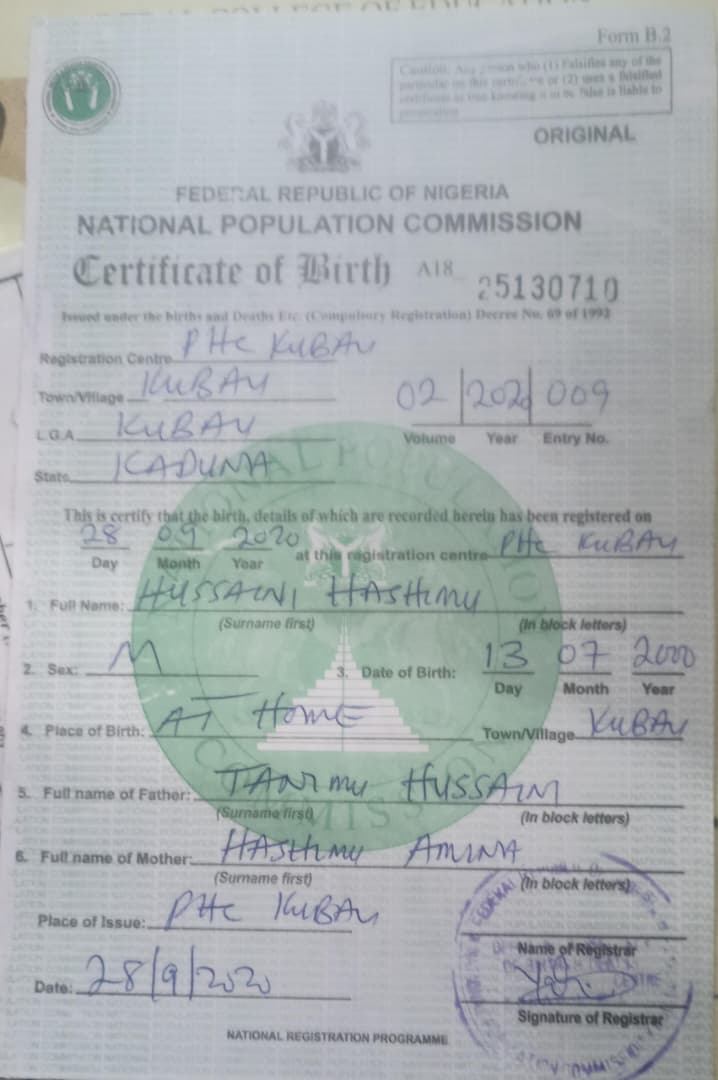 Form B.2
Caution: Any person who (1) Falsifies any of the
particular on this certificate or (2) uses a falsified
certificate as true knowing it to be false is liable to
prosecution
ORIGINAL
FEDERAL REPUBLIC OF NIGERIA
NATIONAL POPULATION COMMISSION
Certificate of Birth A18 25130710
Issued under the births and Deaths Etc. (Compulsory Registration) Decree No. 69 of 1992
Registration Centre PHC KUBAU
Town/Village KUBAU
L.G.A KUBAU
State KADUNA
02 2020 009
Volume Year Entry No.
This is certify that the birth, details of which are recorded herein has been registered on
28 09 2020 at this registration centre PHC KUBAU
Day Month Year
1. Full Name: HUSSAINI HASHIMU
(Surname first) (In block letters)
2. Sex: M 3. Date of Birth: 13 07 2000
Day Month Year
4. Place of Birth: AT HOME Town/Village KUBAU
5. Full name of Father: TANIMU HUSSAIN
(Surname first) (In block letters)
6. Full name of Mother: HASHIMU AMINA
(Surname first) (In block letters)
Place of Issue: PHC KUBAU
Name of Registrar
Date: 28/9/2020
Signature of Registrar
NATIONAL REGISTRATION PROGRAMME